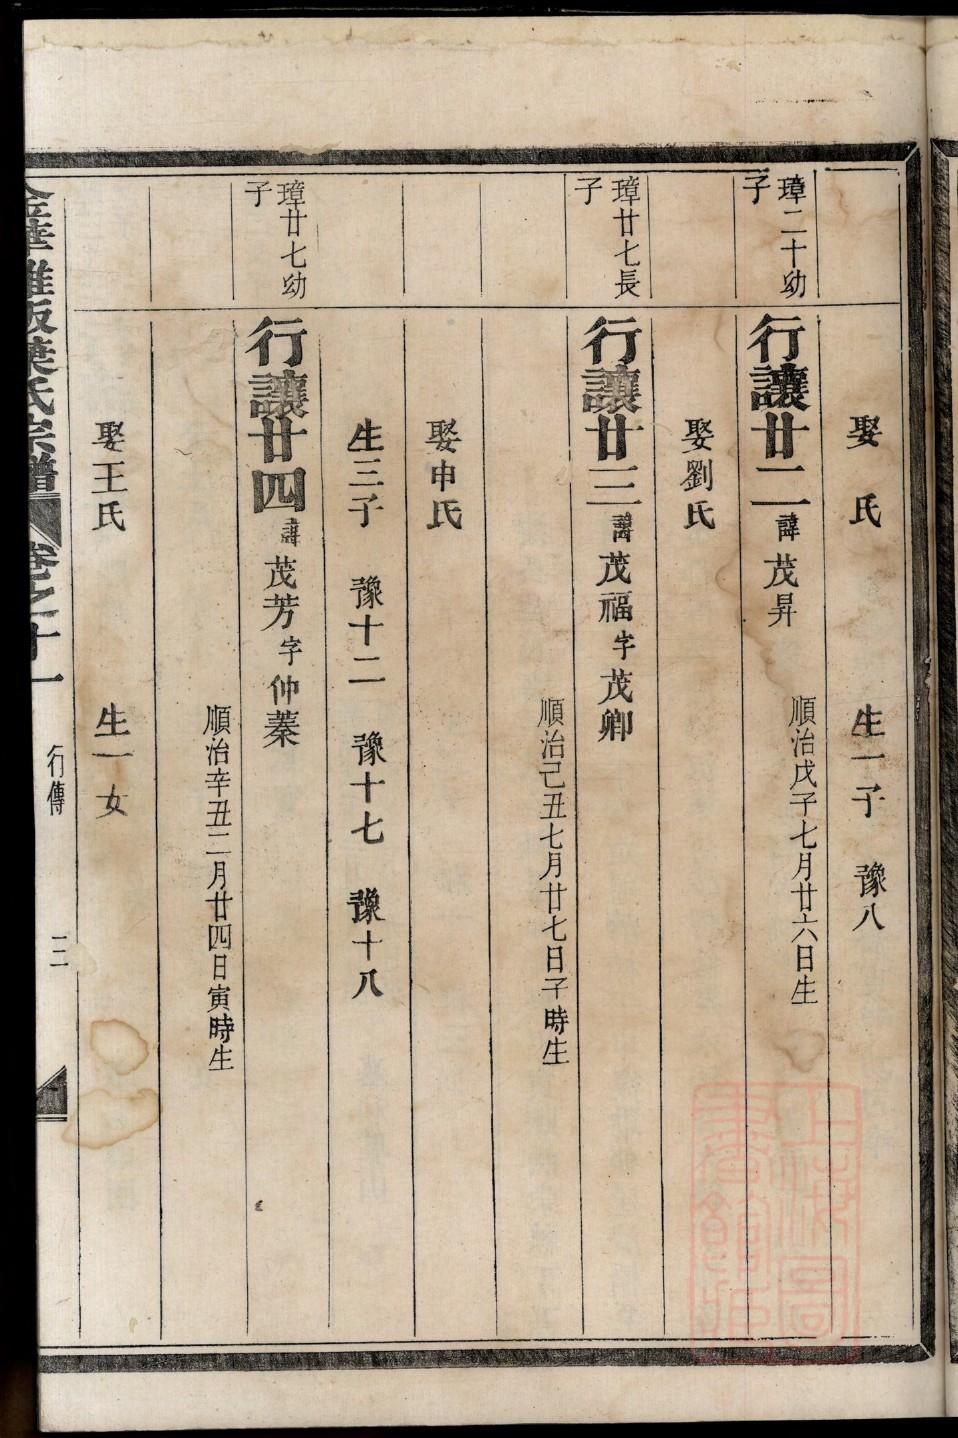 娶　氏　生一子　豫八
璋二十幼子
行讓廿二 諱茂昇
順治戊子七月廿六日生
娶劉氏
璋廿七長子
行讓廿三 諱茂福 字茂卿
順治己丑七月廿七日子時生
娶申氏
生三子　豫十二　豫十七　豫十八
璋廿七幼子
行讓廿四 諱茂芳 字仲蓁
順治辛丑二月廿四日寅時生
娶王氏　生一女
金華雅畈葉氏宗譜 卷之十一 行傳 三
上海圖書館藏